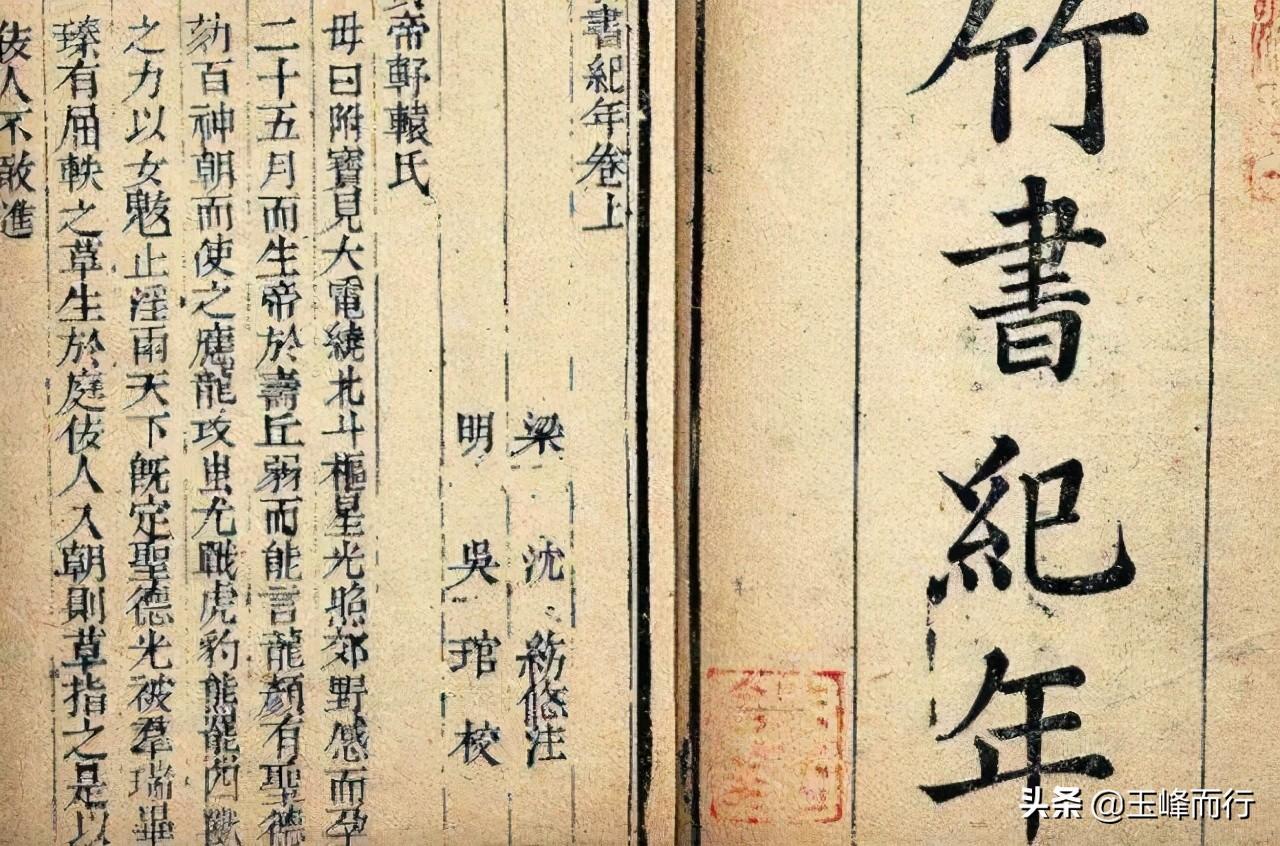 竹書紀年
書紀年卷上
梁 沈 約 悠注
明 吳 琯 校
帝軒轅氏
母曰附寶見大電繞北斗樞星光照郊野感而孕
二十五月而生帝於壽丘弱而能言龍顏有聖德
劾百神朝而使之應龍攻蚩尤戰虎豹熊羆四獸
之力以女魃止淫雨天下既定聖德光被羣瑞畢
臻有屈軼之草生於庭佞人入朝則草指之是以
佞人不敢進
头条 @玉峰而行